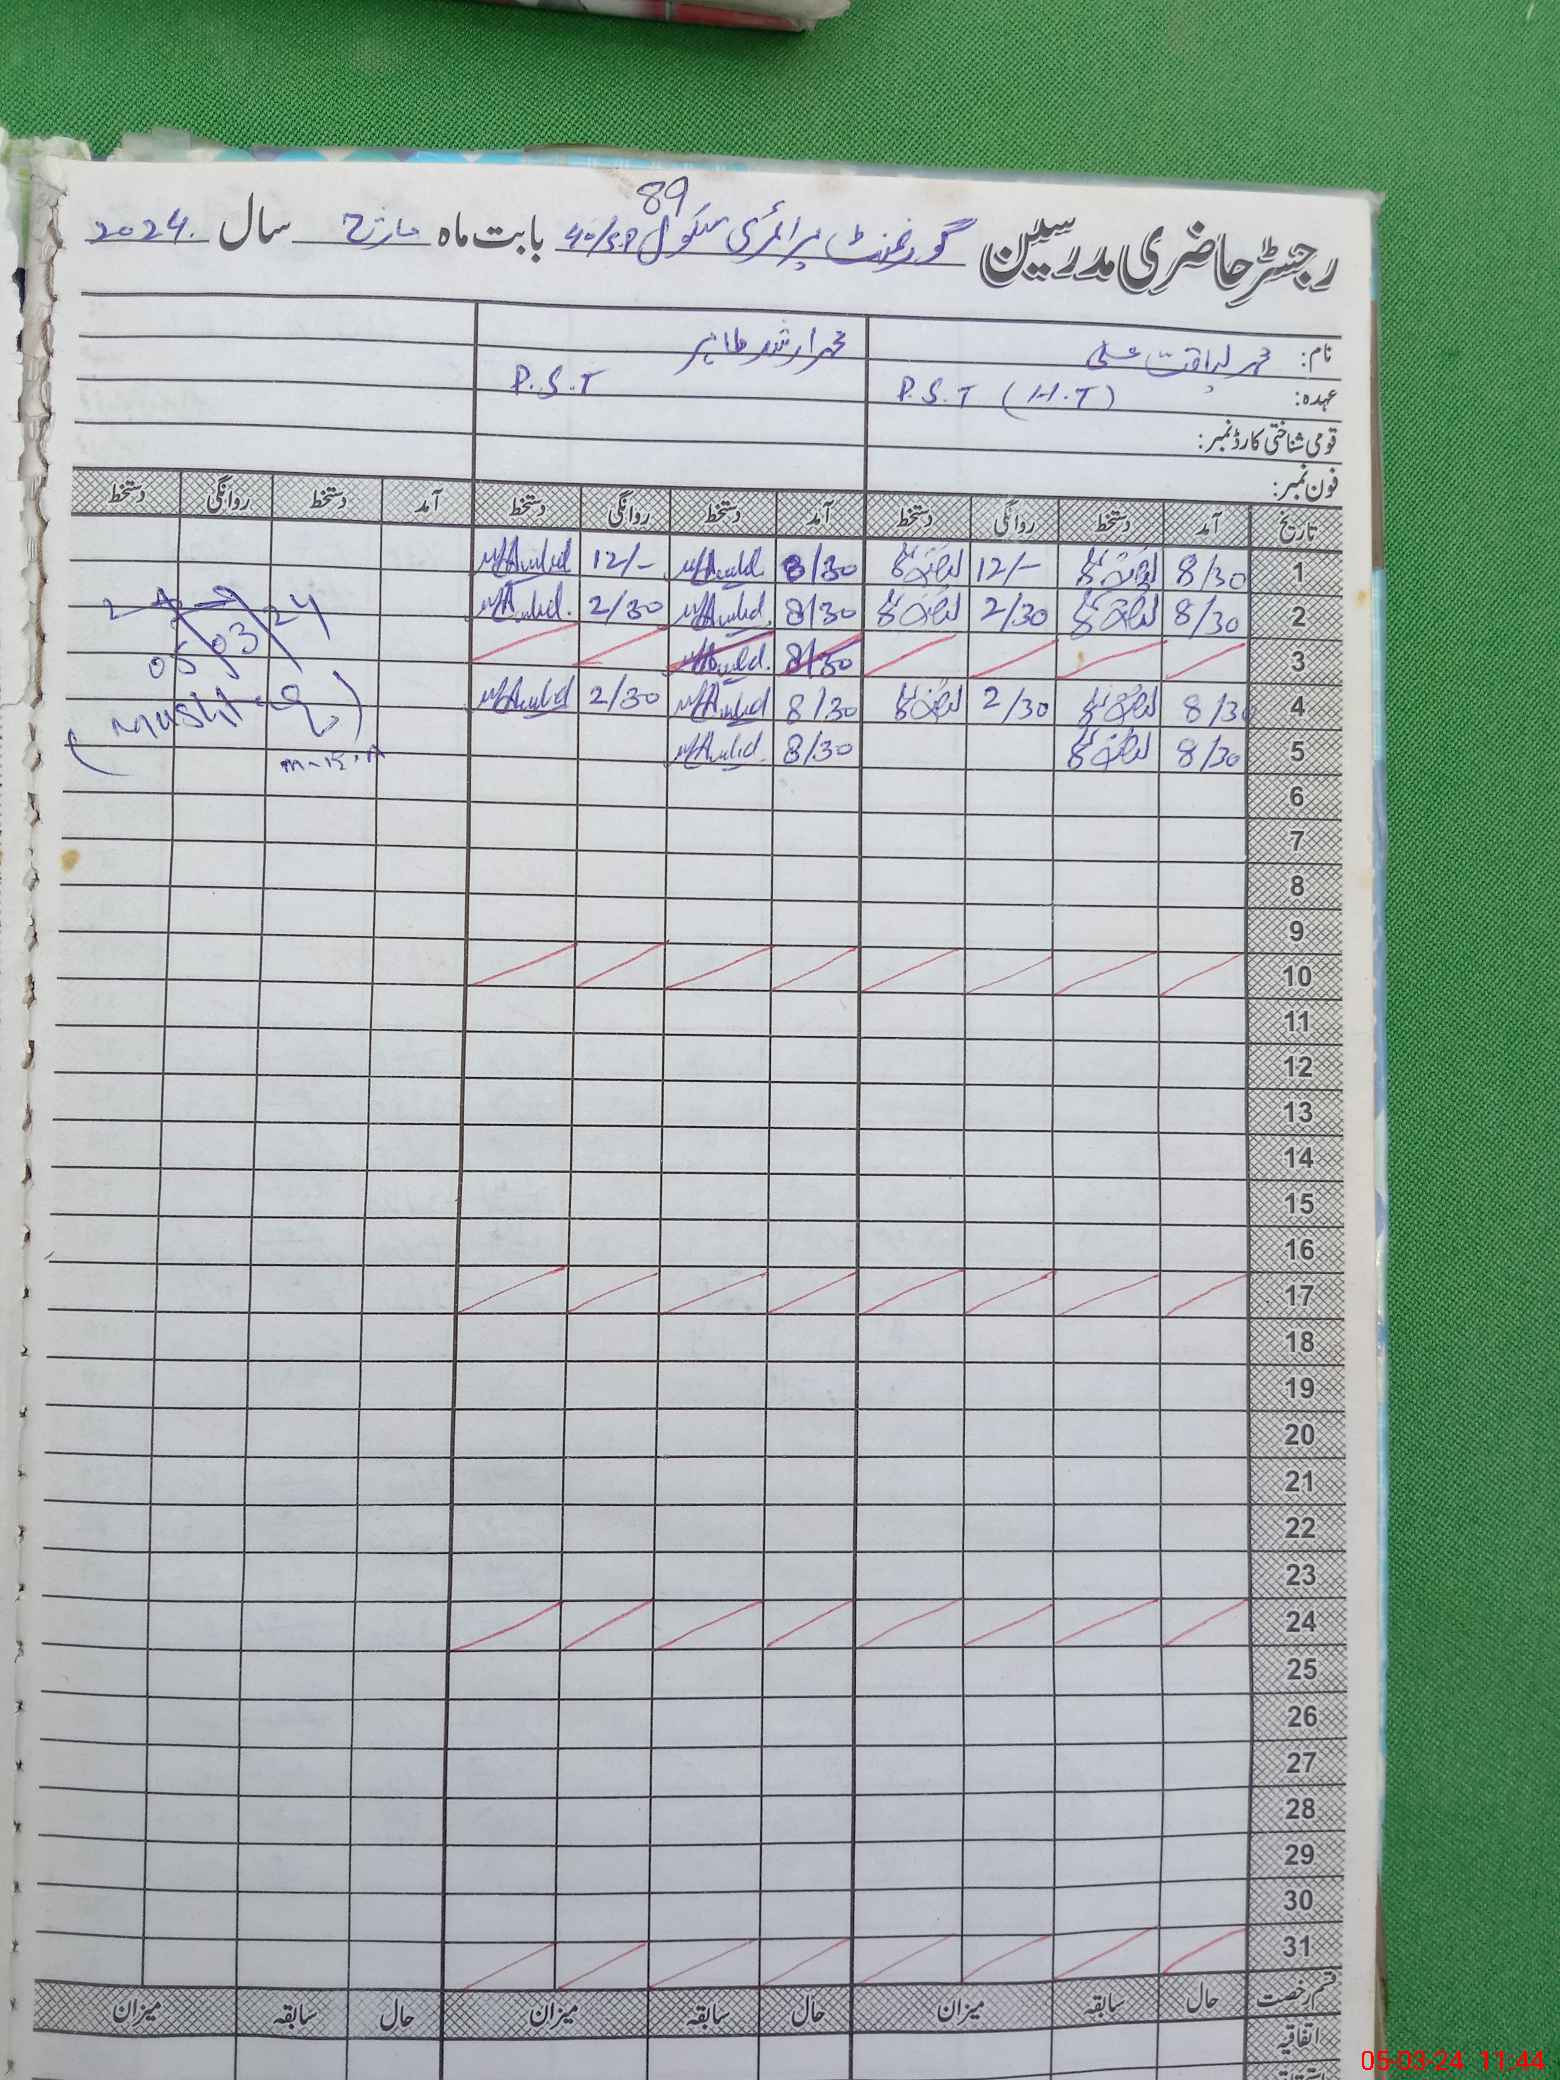 89
رجسٹر حاضری مدرسین گورنمنٹ پرائمری سکول 40/5.P بابت ماہ مارچ سال 2024.
نام: محمد لیاقت علی محمد ارشد طاہر
عہدہ: P.S.T (H.T) P.S.T
قومی شناختی کارڈ نمبر:
فون نمبر:
تاریخ آمد دستخط روانگی دستخط آمد دستخط روانگی دستخط آمد دستخط روانگی دستخط
1 8/30 12/- 8/30 12/-
2 8/30 2/30 8/30 2/30
3 8/30
4 8/30 2/30 8/30 2/30
5 8/30 8/30
05 03 24
6
7
8
9
10
11
12
13
14
15
16
17
18
19
20
21
22
23
24
25
26
27
28
29
30
31
قسم رخصت حال سابقہ میزان حال سابقہ میزان حال سابقہ میزان
اتفاقیہ
05-03-24 11:44